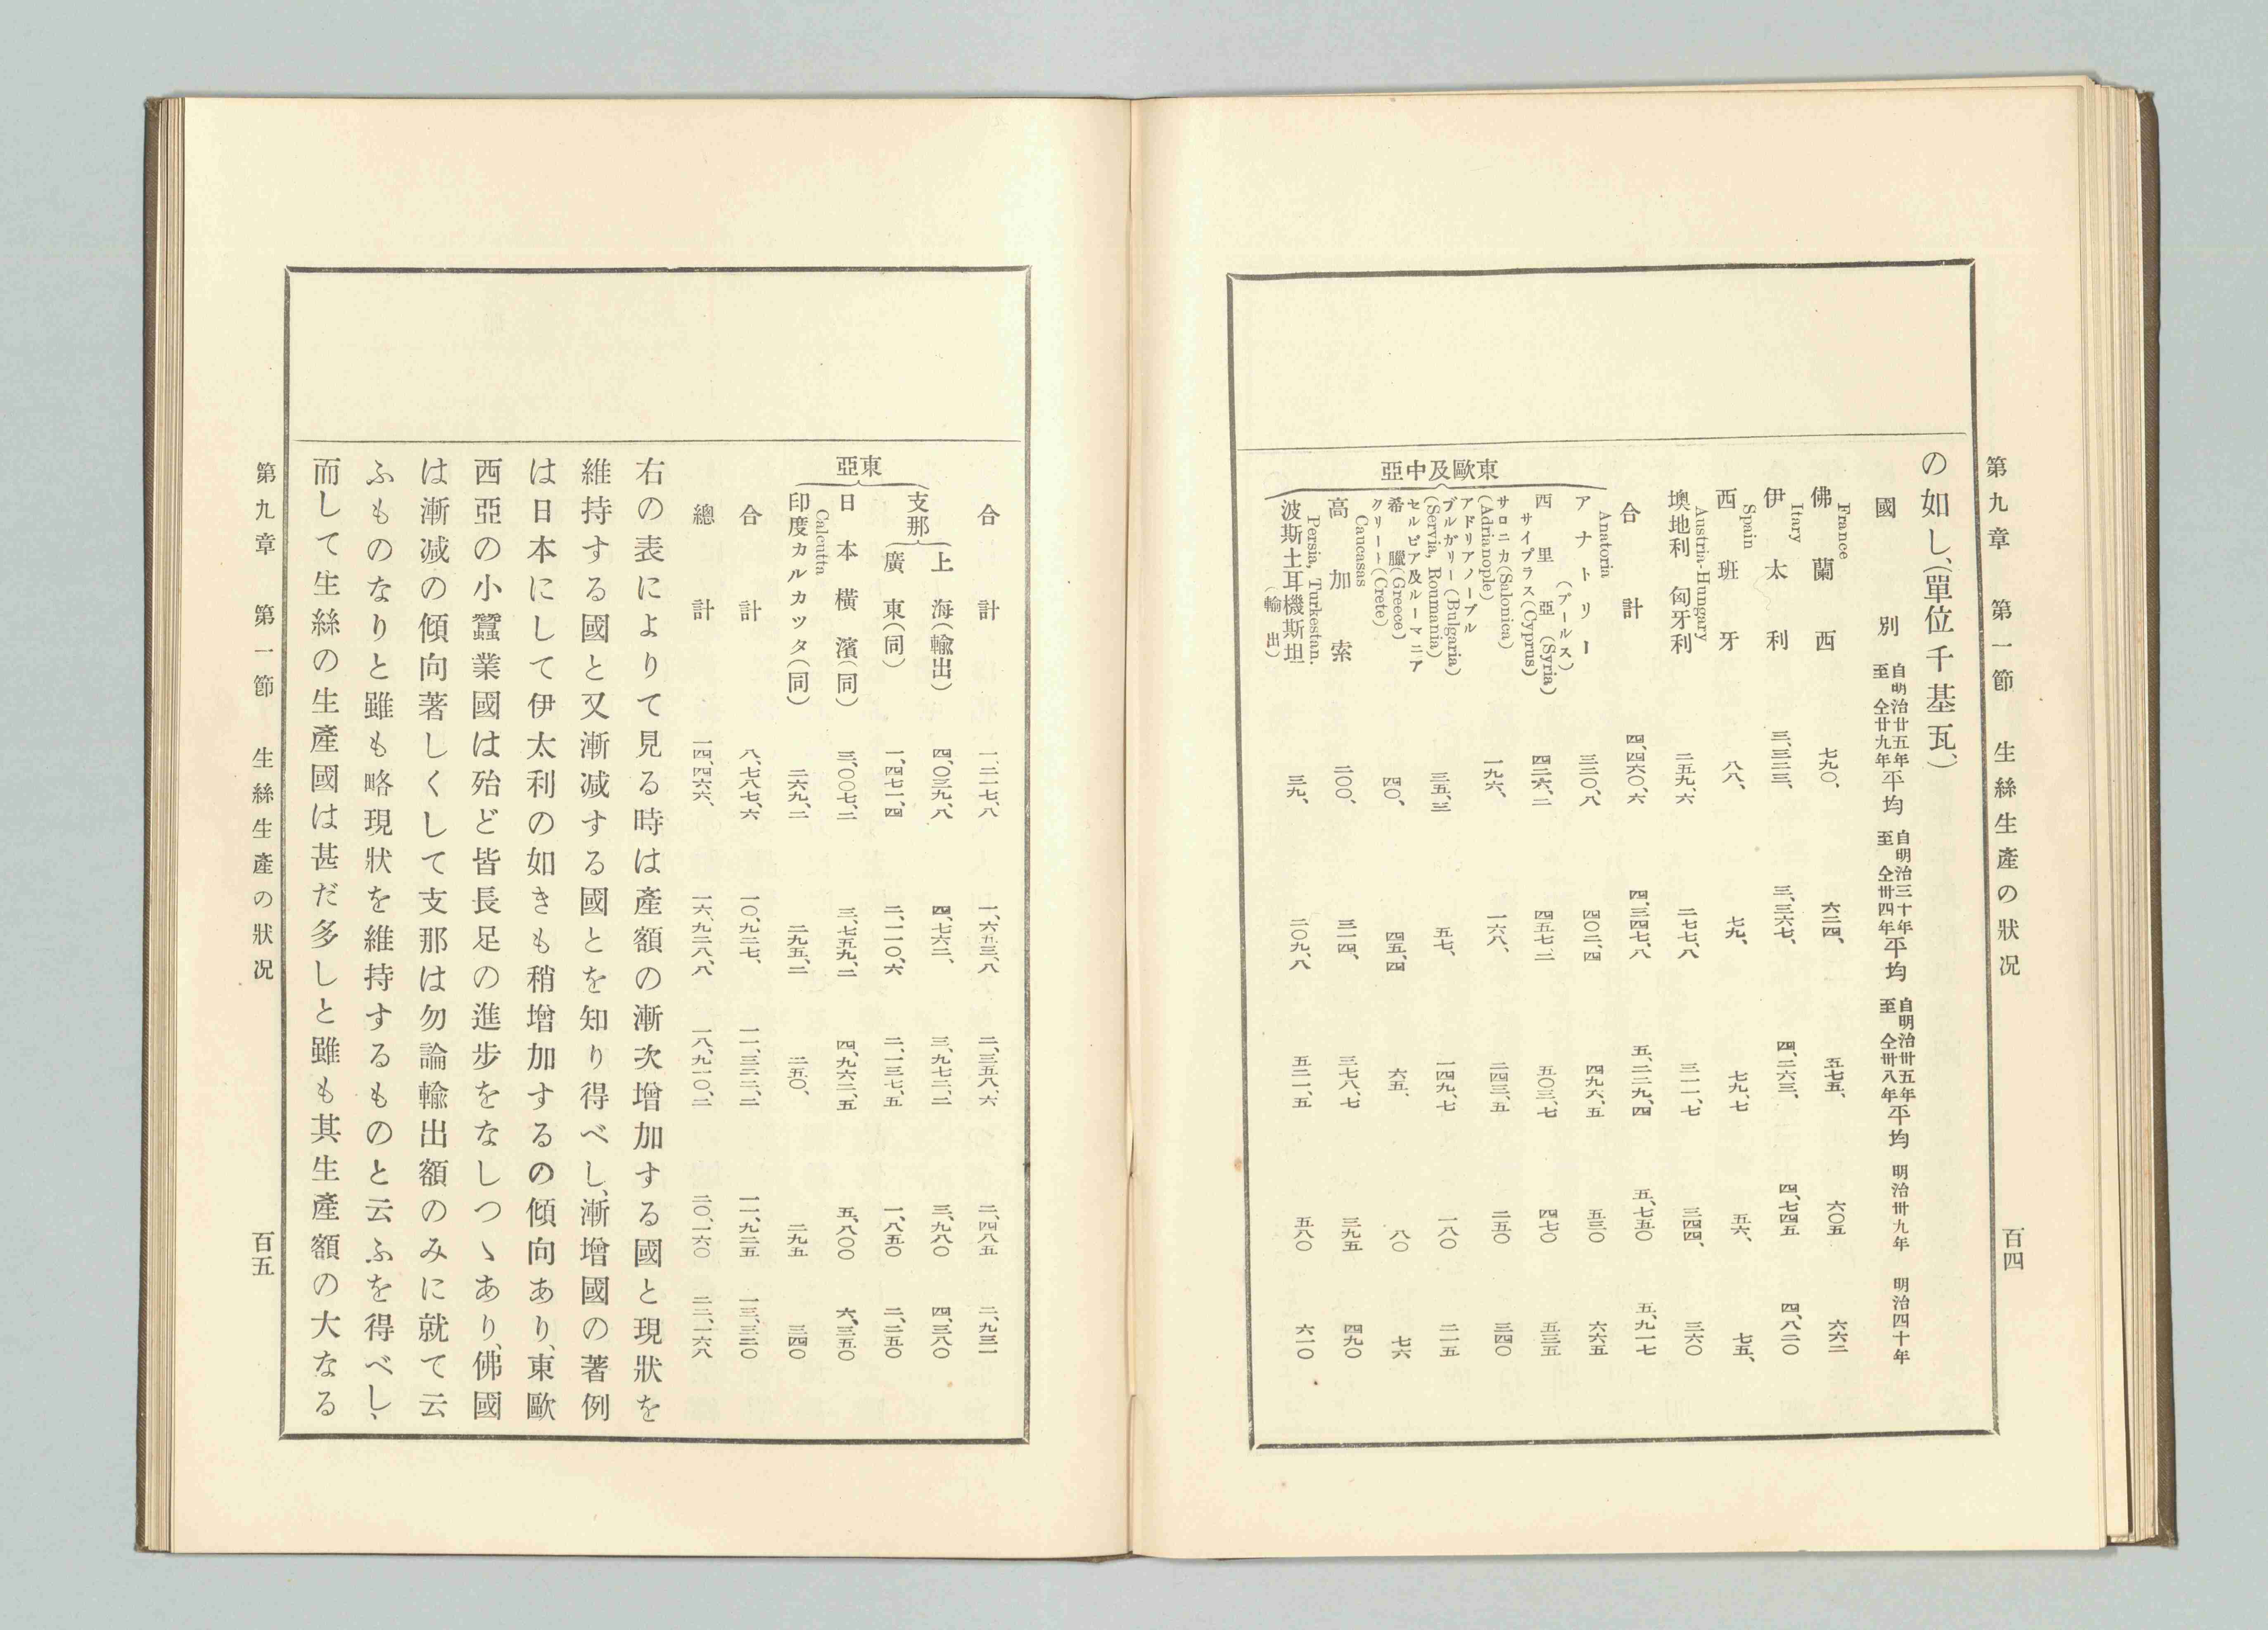 第九章　第一節　生絲生產の狀況　百四
の如し、(單位千基瓦、)
國別　自明治廿五年至仝廿九年平均　自明治三十年至仝卅四年平均　自明治卅五年至仝卅八年平均　明治卅九年　明治四十年
France
佛蘭西　七九〇、　六二四、　五七五、　六〇五　六六二
Itary
伊太利　三、三二三、　三、三六七、　四、二六三、　四、七四五　四、八二〇
Spain
西班牙　八八、　七九、　七九、七　五六、　七五、
Austria-Hungary
墺地利匈牙利　二五九、六　二七七、八　三一一、七　三四四、　三六〇
合計　四、四六〇、六　四、三四七、八　五、二二九、四　五、七五〇　五、九一七
東歐及中亞
Anatoria
アナトリー(ブールス)　三二〇、八　四〇二、四　四九六、五　五三〇　六六五
西里亞(Syria)　四二六、二　四五七、二　五〇三、七　四七〇　五三五
サイプラス(Cyprus)
サロニカ(Salonica)　一九六、　一六八、　二四三、五　二五〇　三四〇
(Adrianople)
アドリアノープル
ブルガリー(Bulgaria)　三五、三　五七、　一四九、七　一八〇　二一五
(Servia, Roumania)
セルビア及ルーマニア
希臘(Greece)　四〇、　四五、四　六五、　八〇　七六
クリート(Crete)
Caucasas
高加索　二〇〇、　三一四、　三七八、七　三九五　四九〇
Persia, Turkestan.
波斯土耳機斯坦(輸出)　三九、　二〇九、八　五二一、五　五八〇　六一〇
合計　一、二一七、八　一、六五三、八　二、三五八、六　二、四八五　二、九三一
東亞
支那
上海(輸出)　四、〇三九、八　四、七六二、　三、九七二、二　三、九八〇　四、三八〇
廣東(同)　一、四七一、四　二、一一〇、六　二、一三七、五　一、八五〇　二、二五〇
日本橫濱(同)　三、〇〇七、二　三、七五九、二　四、九六二、五　五、八〇〇　六、三五〇
Calcutta
印度カルカッタ(同)　二六九、二　二九五、二　二五〇、　二九五　三四〇
合計　八、七八七、六　一〇、九二七、　一一、三二二、二　一一、九二五　一三、三二〇
總計　一四、四六六、　一六、九二八、八　一八、九一〇、二　二〇、一六〇　二二、一六八
右の表によりて見る時は產額の漸次增加する國と現狀を
維持する國と又漸減する國とを知り得べし、漸增國の著例
は日本にして伊太利の如きも稍增加するの傾向あり、東歐
西亞の小蠶業國は殆ど皆長足の進步をなしつゝあり、佛國
は漸減の傾向著しくして支那は勿論輸出額のみに就て云
ふものなりと雖も略現狀を維持するものと云ふを得べし、
而して生絲の生產國は甚だ多しと雖も其生產額の大なる
第九章　第一節　生絲生產の狀況　百五